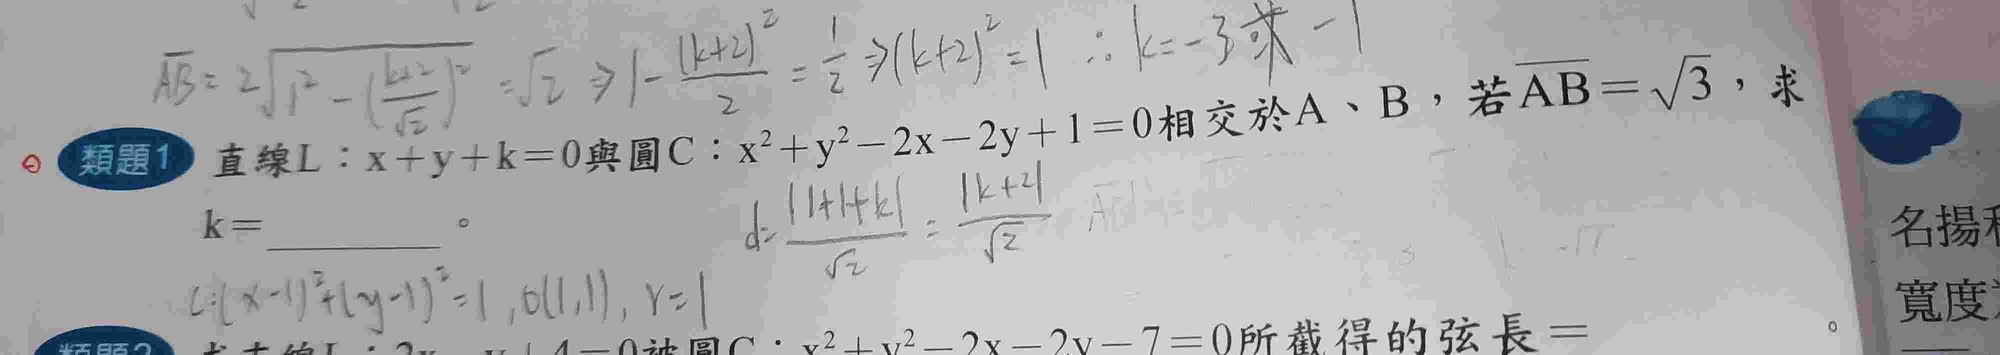 AB = 2√(1² - (k+2/√2)²) = √2 ⇒ 1 - (k+2)²/2 = 1/2 ⇒ (k+2)² = 1 ∴ k = -3 或 -1
類題1 直線L：x+y+k=0與圓C：x²+y²-2x-2y+1=0相交於A、B，若AB=√3，求
k=________。
d = |1+1+k|/√2 = |k+2|/√2
C:(x-1)²+(y-1)²=1, O(1,1), r=1
類題2
4=0被圓C：x²+y²-2x-2y-7=0所截得的弦長=
。
名揚
寬度